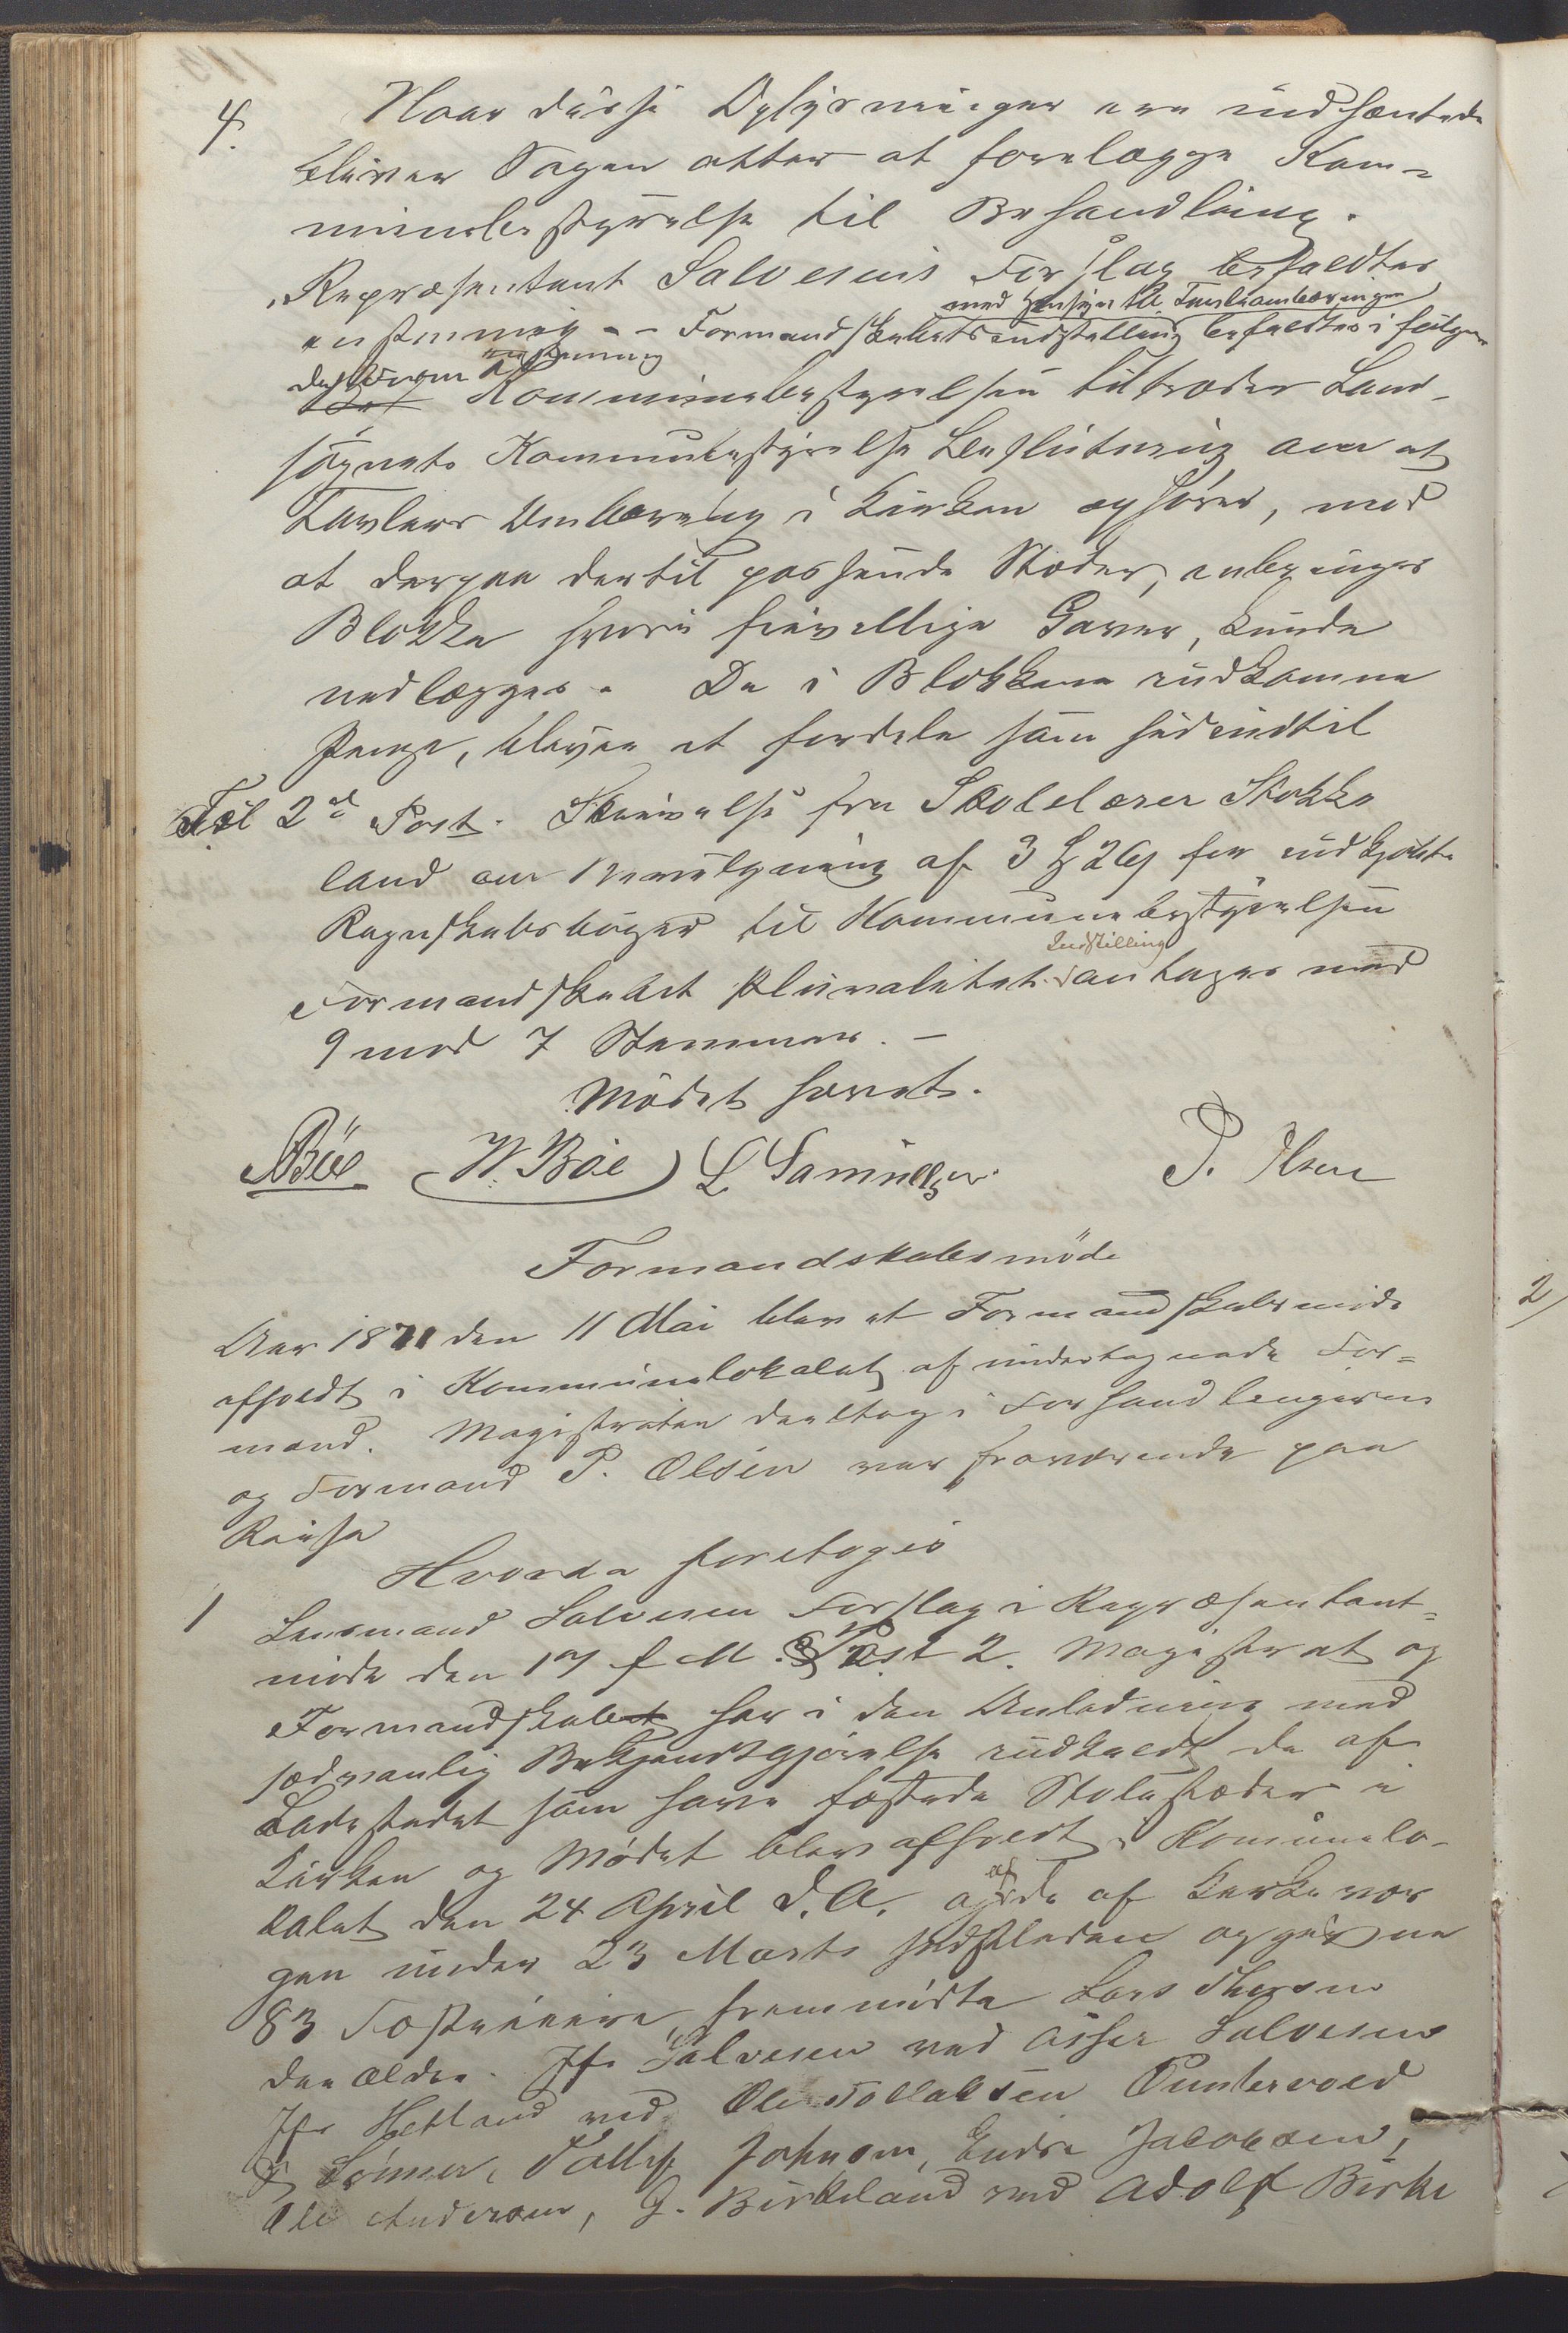 4. Naar disse Oplysninger ere indhentede
bliver Sagen atter at forelægge Kom-
munebestyrelse til Behandling.
Repræsentant Salvesens Forslag bifaldtes
med Hensyn til Tavleombæringen
enstemmig - - Formandskabets indstilling bifaldtes i følgen
de Form enstemmig
Kommunebestyrelsen tiltræder Land-
sognets Kommunebestyrelse Beslutning om at
Tavlers Ombæring i Kirken ophører, mod
at derpaa dertil passende Steder, anbringes
Blokke hvori frivillige Gaver, kunde
nedlægges. De i Blokkene indkomne
Penge, bliver at fordele som hidindtil
Til 2d Post. Skrivelse fra Skolelærer Stokke
land om Bevilgning af 3 § 26 for indkjøbte
Regnskabsbøger til Kommunebestyrelsen
Indstilling
Formandskabet Pluralitets antages med
9 mod 7 Stemmer. -
Mødet hævet.
W. Böe L Samuelsen P. Olsen
Formandskabsmöde
Aar 1871 den 11 Mai blev et Formandskabsmöde
afholdt i Kommunelokalet af undertegnede For=
mænd. Magistraten deeltog i Forhandlingerne
og Formand P. Olsen var fraværende paa
Reise
Hvorda foretoges
1 Lensmand Salvesen Forslag i Repræsentant=
møde den 17 f M. Post 2. Magistrat og
Formandskabet har i den Anledning med
sædvanlig Bekjendtgjørelse indkaldt de af
Ladestedet som have fæstede Stolestæder i
Kirken og Mødet blev afholdt i Komunelo-
kalet den 24 April d. A. af de af Kirkever
gen under 23 Marts opgivne
83 Fæstere, fremmødte Lars Thorsen
den ældre. Jfr Salvesen ved Asser Salvesen
Jfr Hetland ved Ole Tollaksen Puntervold
Tollef Johnsen, Endre Jacobsen,
Ole Andersen, G. Birkeland ved Adolf Birke
2)